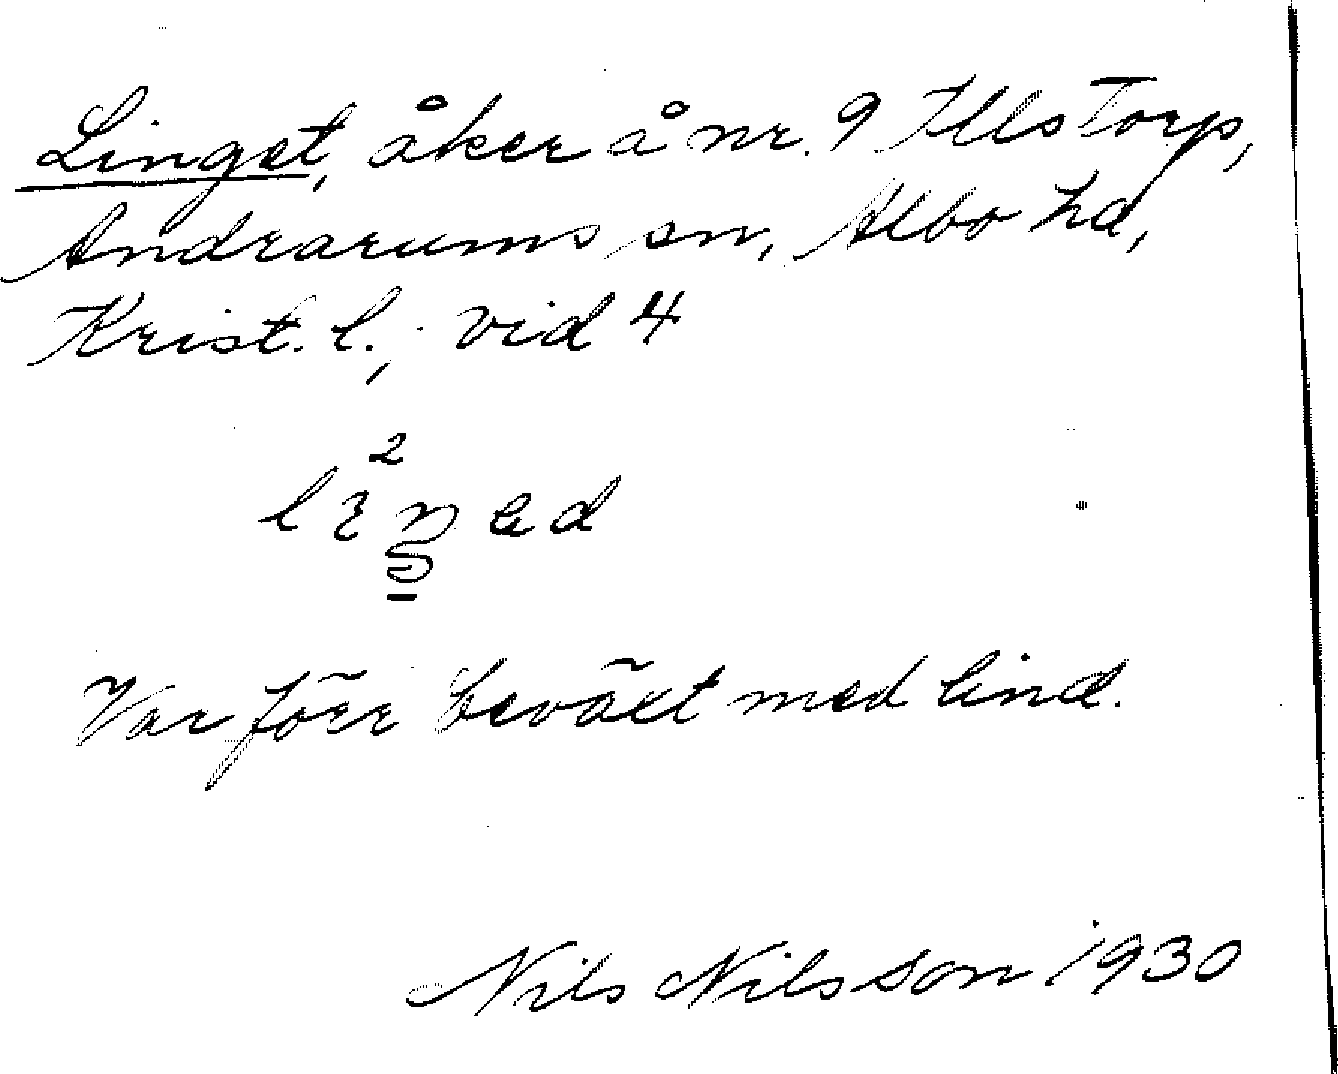 Linget, åker å nr. 9 Illstorp,
Andrarums sn, Albo hd,
Krist. l.; vid 4
Var förr bevãxt med lind.
Nils Nilsson 1930